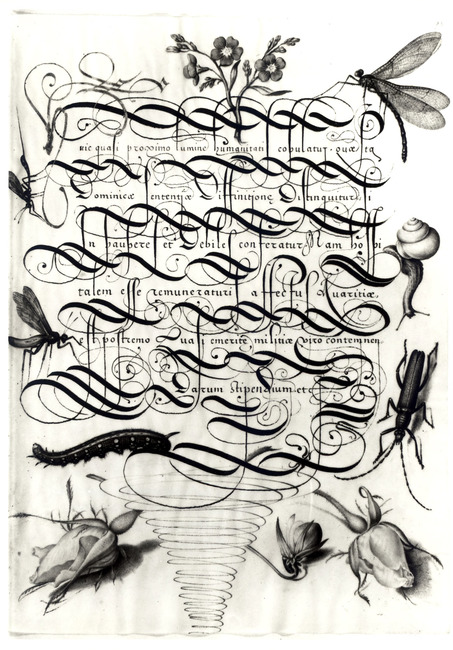 ric quasi proximo lumine humanitati copulatur, quæ ita
Dominicæ sententiæ Diffinitione Distinguitur, si
in paupere et Debiles conferatur. Nam hospi
talem esse remuneraturis affectus Avaritiæ,
est, postremo Quasi emeritæ militiæ viro contemnen
Darum stipendium etc.